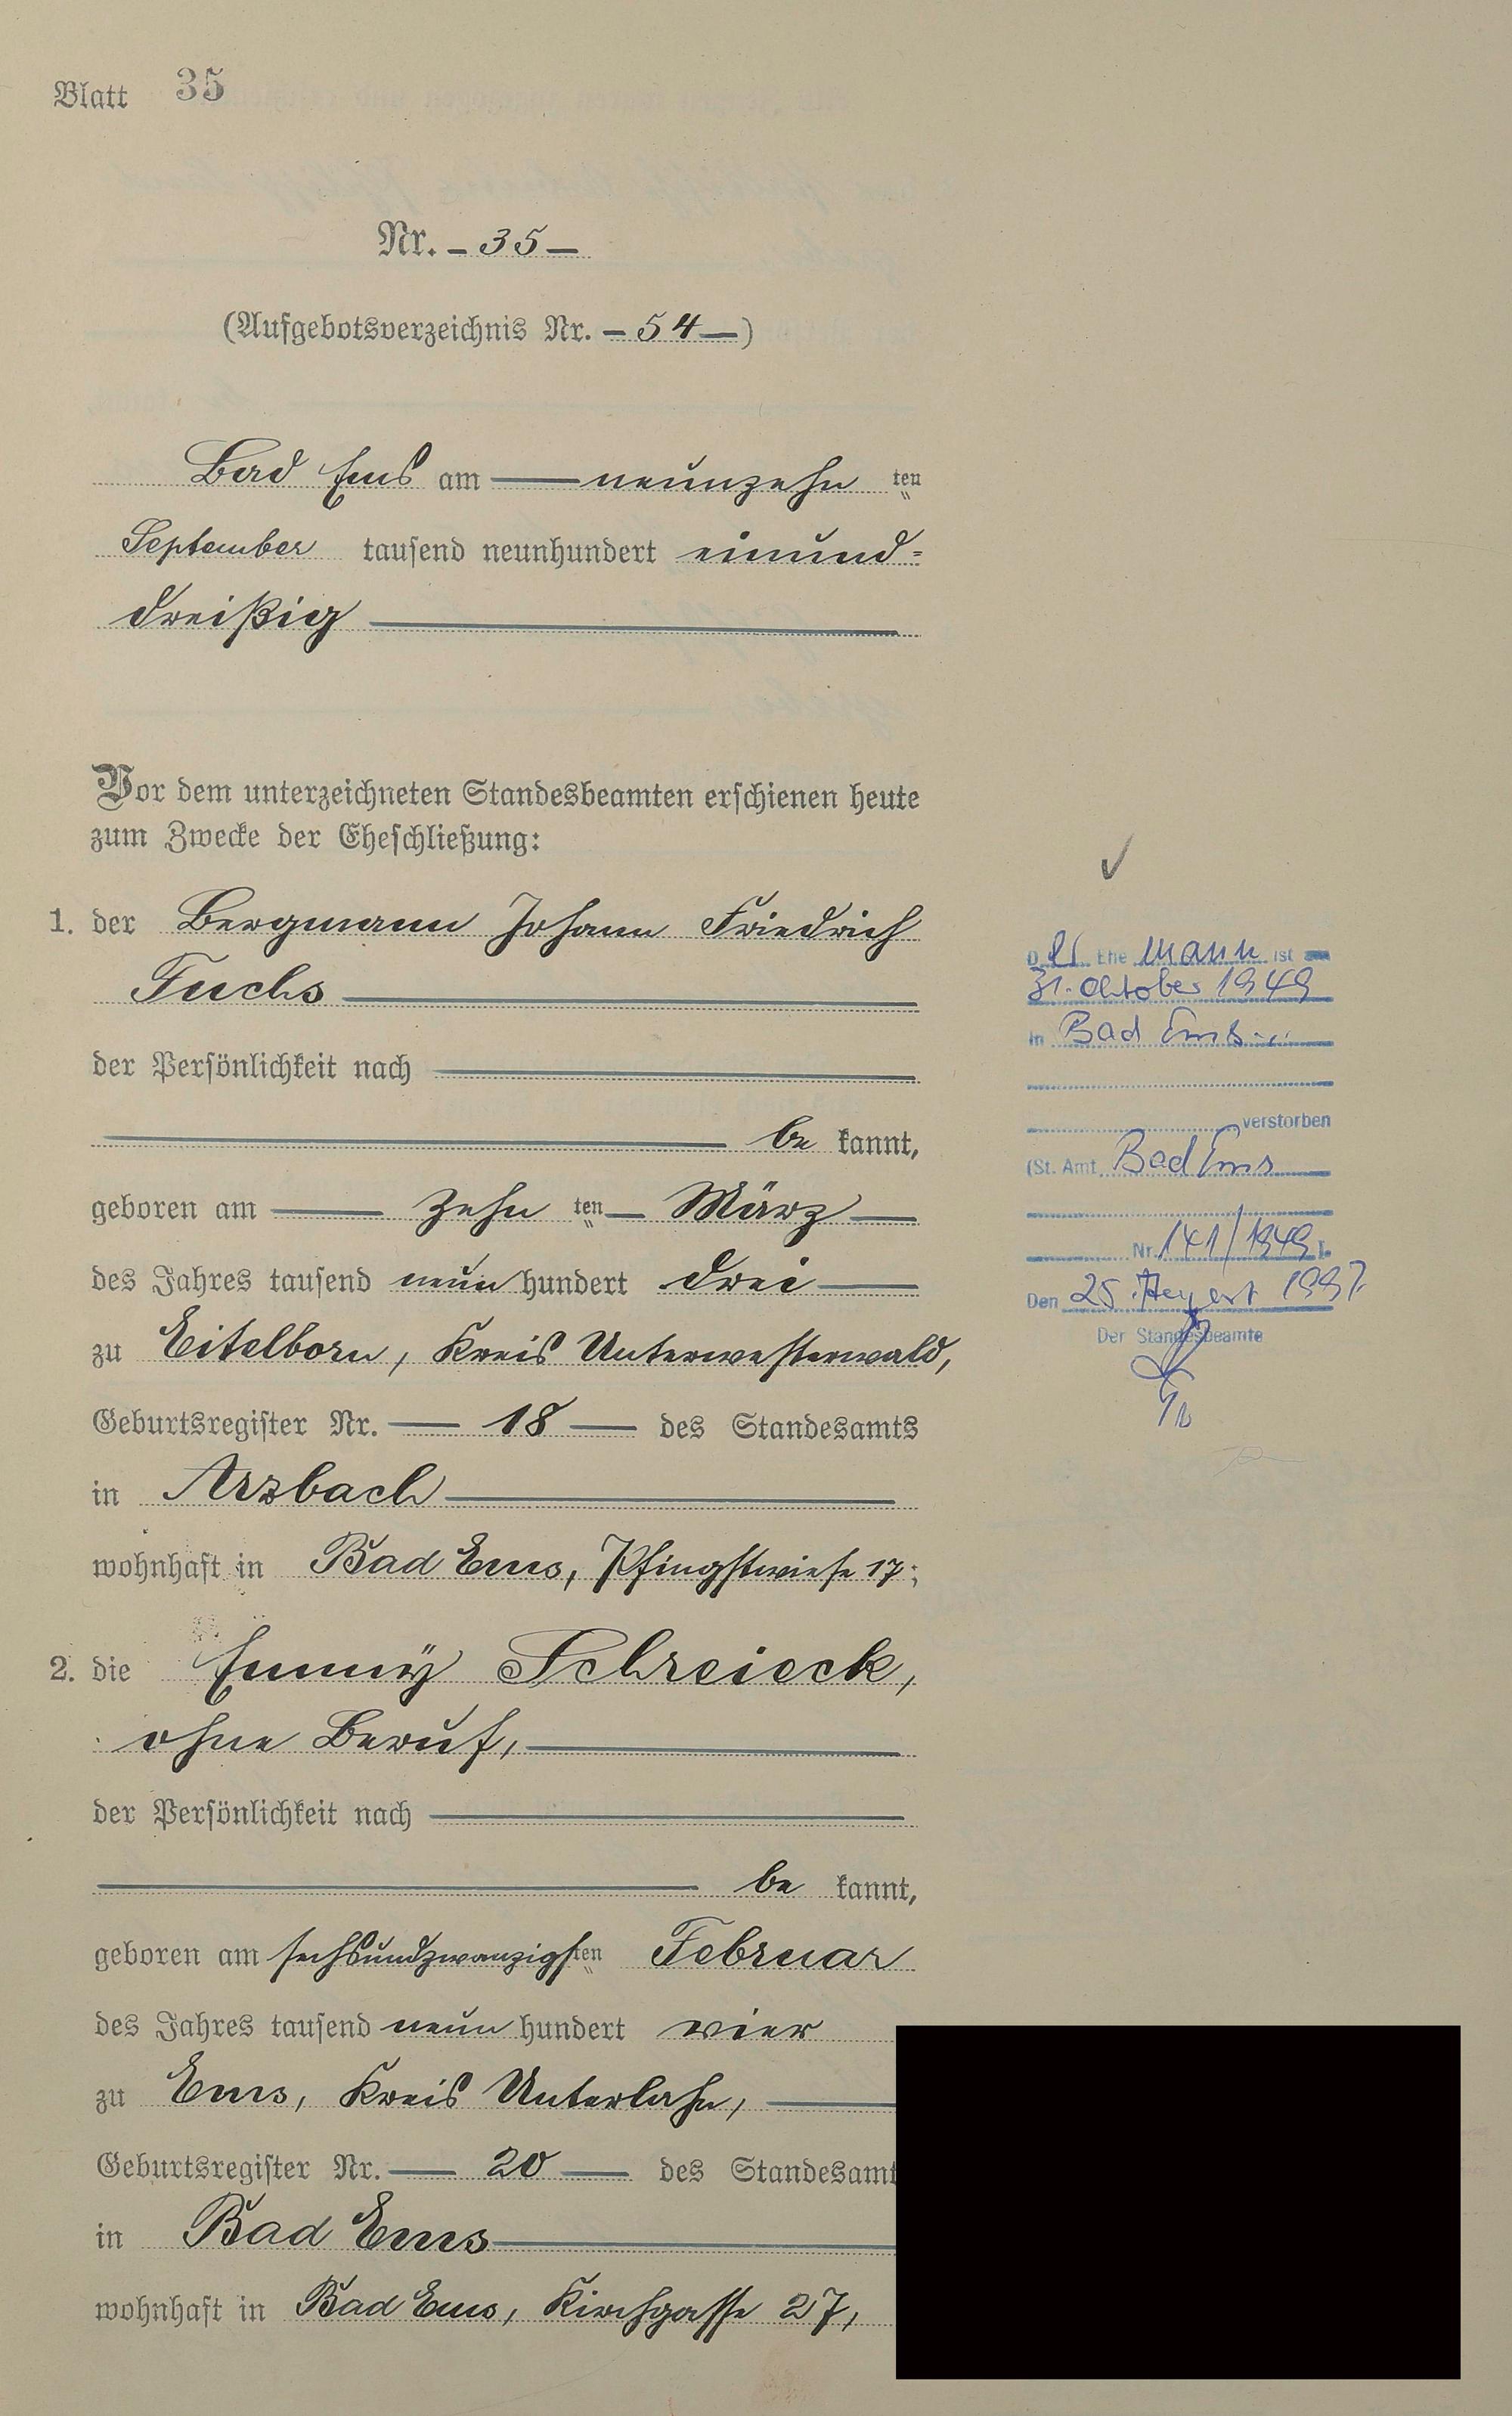 Blatt 35
Nr. - 35 -
(Aufgebotsverzeichnis Nr. - 54 -)
Bad Ems am neunzehn ten
September tausend neunhundert einund=
dreißig
Vor dem unterzeichneten Standesbeamten erschienen heute
zum Zwecke der Eheschließung:
1. der Bergmann Johann Friedrich
Fuchs
der Persönlichkeit nach
be kannt,
geboren am zehn ten März
des Jahres tausend neun hundert drei
zu Eitelborn, Kreis Unterwesterwald,
Geburtsregister Nr. 18 des Standesamts
in Arzbach
wohnhaft in Bad Ems, Pfingstwiese 17;
2. die Emmy Schreieck,
ohne Beruf,
der Persönlichkeit nach
be kannt,
geboren am sechsundzwanzigsten Februar
des Jahres tausend neun hundert vier
zu Ems, Kreis Unterlahn,
Geburtsregister Nr. 20 des Standesamt
in Bad Ems
wohnhaft in Bad Ems, Kirchgasse 27,
Der Ehe mann ist am
31. Oktober 1949
in Bad Ems
verstorben
(St. Amt Bad Ems
Nr. 141/1949
Den 25. August 1997
Der Standesbeamte